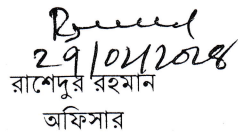 29/01/2028
রাশেদুর রহমান
অফিসার